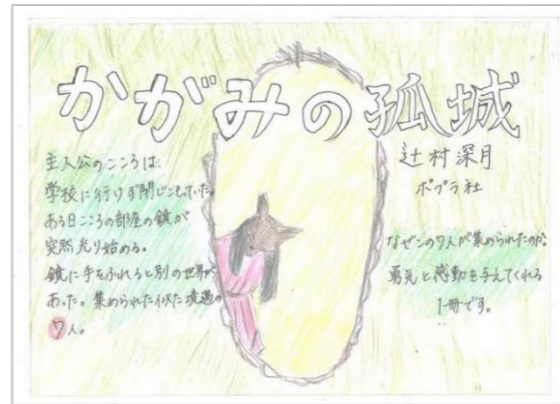 かがみの孤城
辻村深月
ポプラ社
主人公のこころは、
学校に行けず閉じこもっていた。
ある日こころの部屋の鏡が
突然光り始める。
鏡に手をふれると別の世界が
あった。集められた似た境遇の
7人。
なぜこの7人が集められたのか。
勇気と感動を与えてくれる
1冊です。